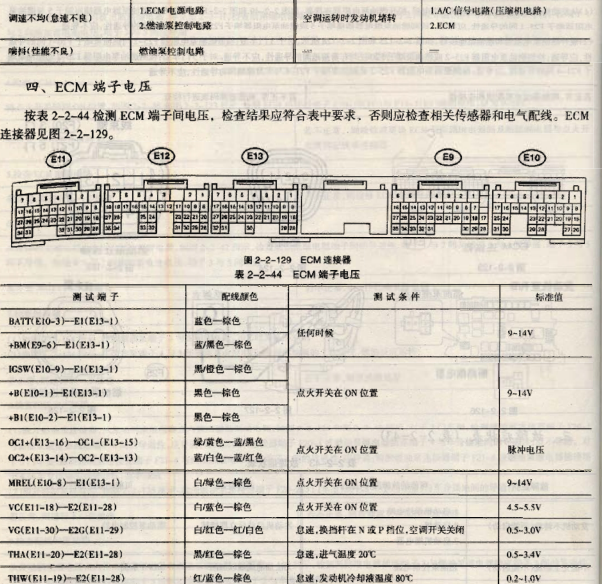 调速不均(怠速不良)
1.ECM 电源电路
2.燃油泵控制电路
空调运转时发动机堵转
1.A/C 信号电路(压缩机电路)
2.ECM
喘抖(性能不良)
燃油泵控制电路
—
—
四、ECM 端子电压
按表 2-2-44 检测 ECM 端子间电压，检查结果应符合表中要求，否则应检查相关传感器和电气配线。ECM
连接器见图 2-2-129。
E11 E12 E13 E9 E10
图 2-2-129 ECM 连接器
表 2-2-44 ECM 端子电压
测 试 端 子 配线颜色 测 试 条 件 标准值
BATT(E10-3)—E1(E13-1) 蓝色—棕色
任何时候 9~14V
+BM(E9-6)—E1(E13-1) 蓝/黑色—棕色
IGSW(E10-9)—E1(E13-1) 黑/橙色—棕色
+B(E10-1)—E1(E13-1) 黑色—棕色 点火开关在 ON 位置 9~14V
+B1(E10-2)—E1(E13-1) 黑色—棕色
OC1+(E13-16)—OC1-(E13-15) 绿/黄色—蓝/黑色
点火开关在 ON 位置 脉冲电压
OC2+(E13-14)—OC2-(E13-13) 蓝/白色—蓝/红色
MREL(E10-8)—E1(E13-1) 白/绿色—棕色 点火开关在 ON 位置 9~14V
VC(E11-18)—E2(E11-28) 白/蓝色—棕色 点火开关在 ON 位置 4.5~5.5V
VG(E11-30)—E2G(E11-29) 白/红色—红/白色 怠速,换挡杆在 N 或 P 档位,空调开关关闭 0.5~3.0V
THA(E11-20)—E2(E11-28) 黑/红色—棕色 怠速,进气温度 20℃ 0.5~3.4V
THW(E11-19)—E2(E11-28) 红/蓝色—棕色 怠速,发动机冷却液温度 80℃ 0.2~1.0V